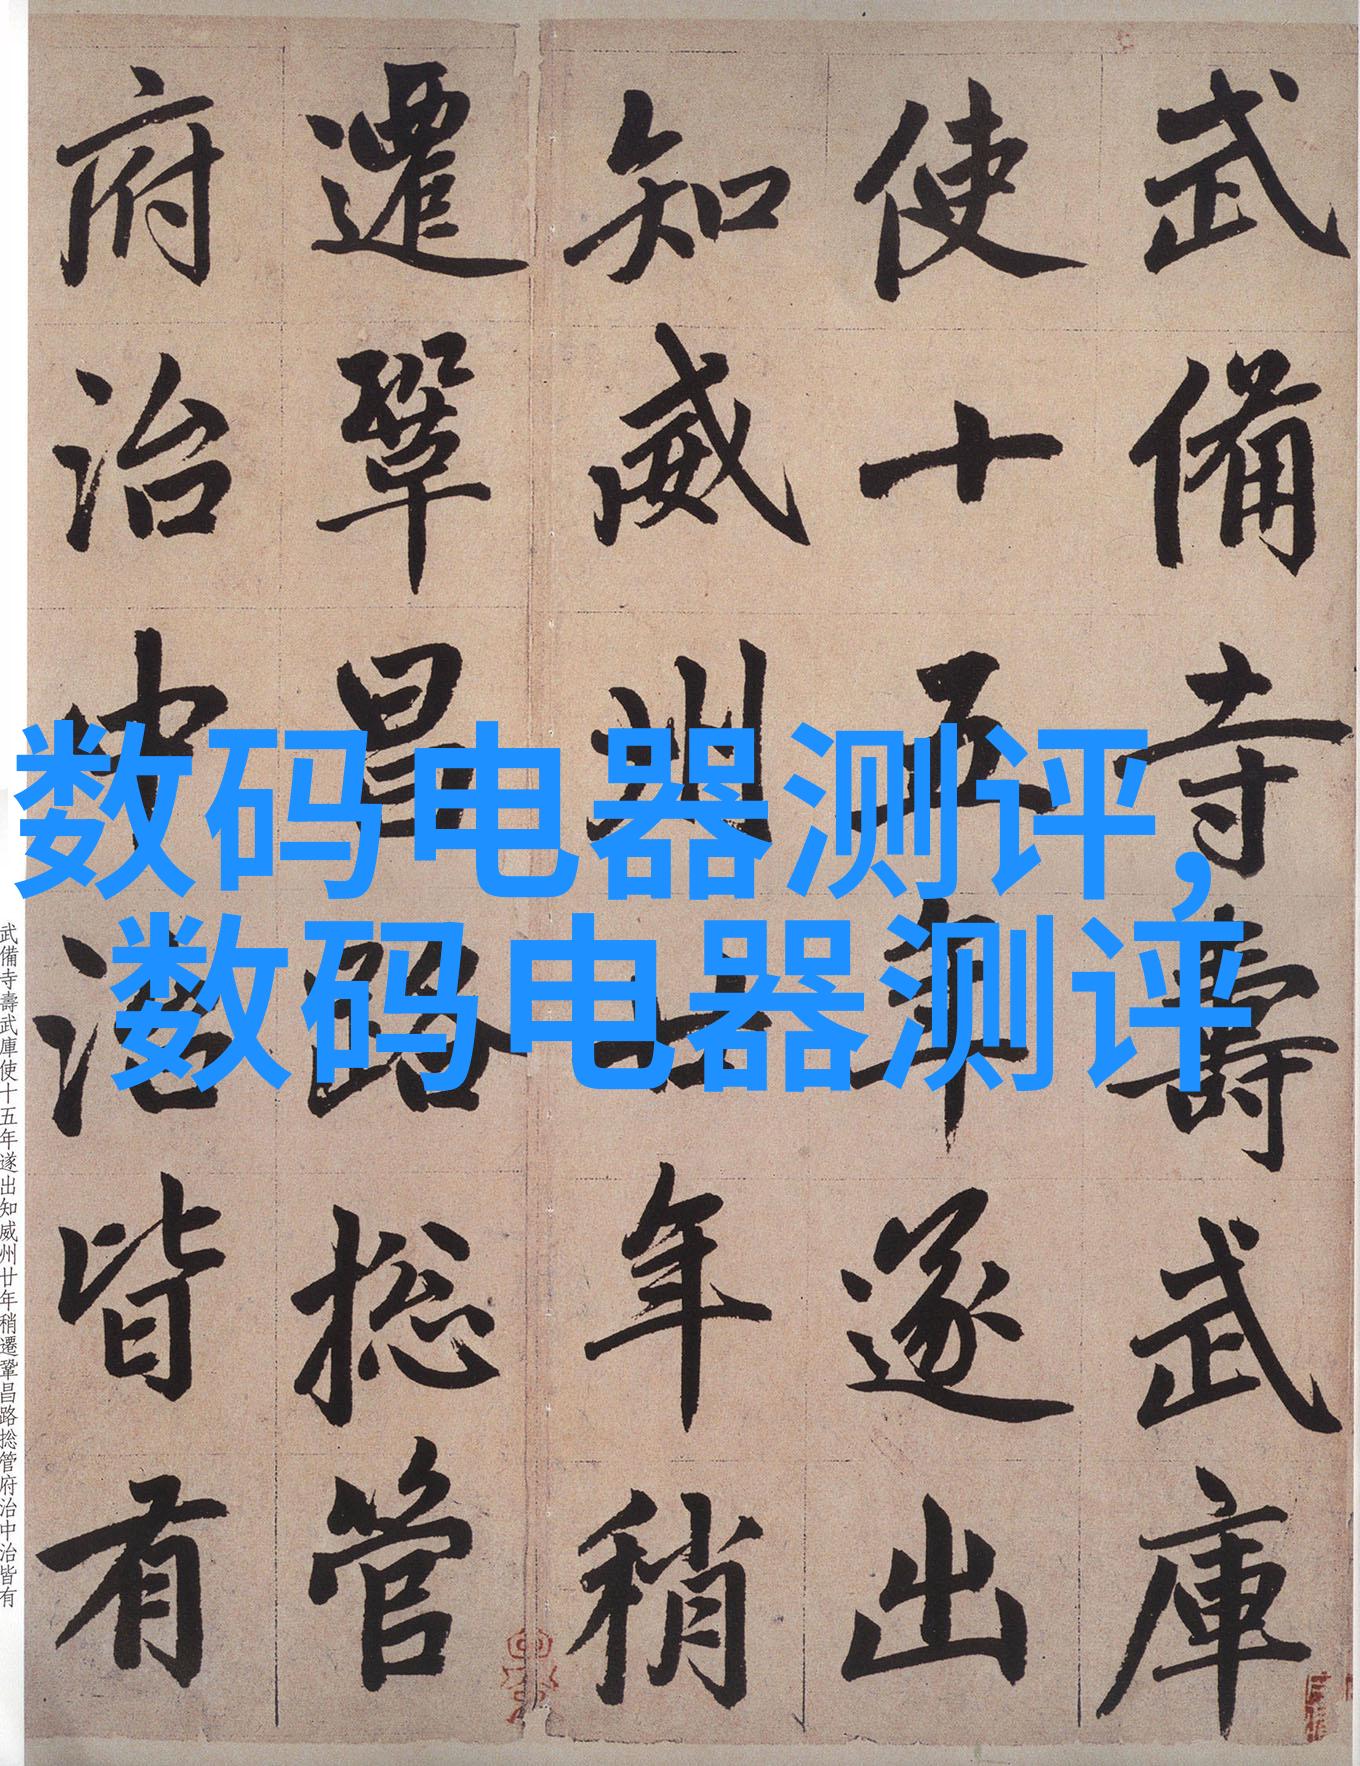 武備寺壽武庫
使十五年遂出
知威州廿年稍
遷鞏昌路捴管
府治中治皆有
数码电器测评,
数码电器测评
武備寺壽武庫使十五年遂出知威州廿年稍遷鞏昌路捴管府治中治皆有